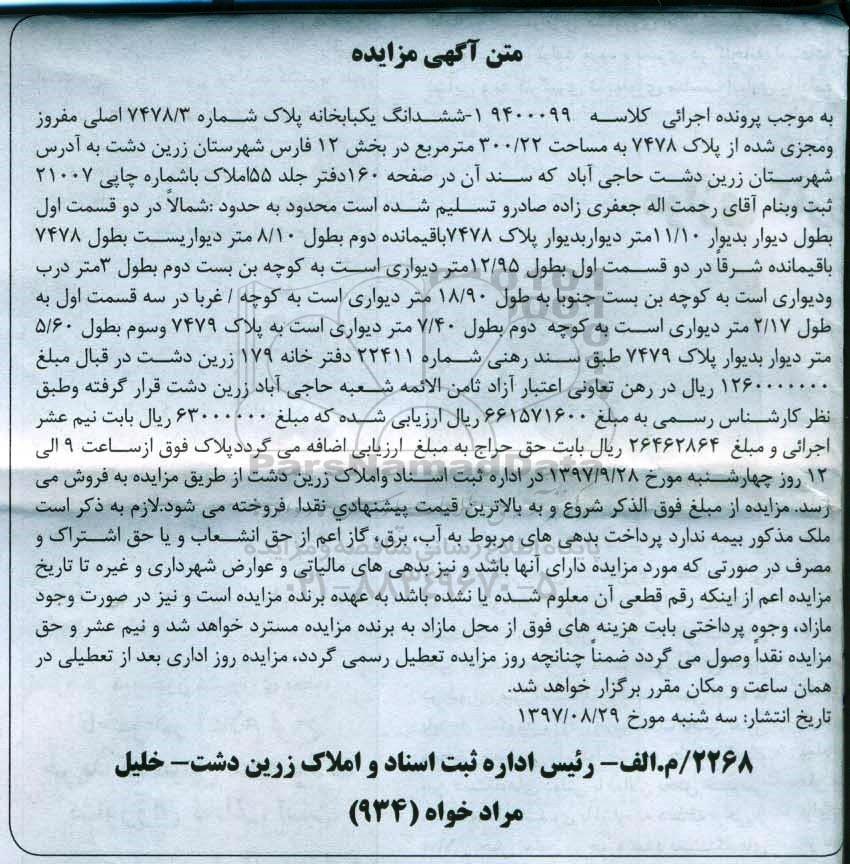 متن آگهی مزایده
به موجب پرونده اجرائی کلاسه ۹۴۰۰۰۹۹ ۱-ششدانگ یکبابخانه پلاک شماره ۷۴۷۸/۳ اصلی مفروز
ومجزی شده از پلاک ۷۴۷۸ به مساحت ۳۰۰/۲۲ مترمربع در بخش ۱۲ فارس شهرستان زرین دشت به آدرس
شهرستان زرین دشت حاجی آباد که سند آن در صفحه ۱۶۰دفتر جلد ۵۵املاک باشماره چاپی ۲۱۰۰۷
ثبت وبنام آقای رحمت اله جعفری زاده صادرو تسلیم شده است محدود به حدود :شمالاً در دو قسمت اول
بطول دیوار بدیوار ۱۱/۱۰متر دیواربدیوار پلاک ۷۴۷۸باقیمانده دوم بطول ۸/۱۰ متر دیواریست بطول ۷۴۷۸
باقیمانده شرقاً در دو قسمت اول بطول ۱۲/۹۵متر دیواری است به کوچه بن بست دوم بطول ۳متر درب
ودیواری است به کوچه بن بست جنوبا به طول ۱۸/۹۰ متر دیواری است به کوچه / غربا در سه قسمت اول به
طول ۲/۱۷ متر دیواری است به کوچه دوم بطول ۷/۴۰ متر دیواری است به پلاک ۷۴۷۹ وسوم بطول ۵/۶۰
متر دیوار بدیوار پلاک ۷۴۷۹ طبق سند رهنی شماره ۲۲۴۱۱ دفتر خانه ۱۷۹ زرین دشت در قبال مبلغ
۱۲۶۰۰۰۰۰۰۰ ریال در رهن تعاونی اعتبار آزاد ثامن الائمه شعبه حاجی آباد زرین دشت قرار گرفته وطبق
نظر کارشناس رسمی به مبلغ ۶۶۱۵۷۱۶۰۰ ریال ارزیابی شده که مبلغ ۶۳۰۰۰۰۰۰ ریال بابت نیم عشر
اجرائی و مبلغ ۲۶۴۶۲۸۶۴ ریال بابت حق حراج به مبلغ ارزیابی اضافه می گرددپلاک فوق ازساعت ۹ الی
۱۲ روز چهارشنبه مورخ ۱۳۹۷/۹/۲۸ در اداره ثبت اسناد واملاک زرین دشت از طریق مزایده به فروش می
رسد. مزایده از مبلغ فوق الذکر شروع و به بالاترین قیمت پیشنهادي نقدا فروخته می شود.لازم به ذکر است
ملک مذکور بیمه ندارد پرداخت بدهی های مربوط به آب، برق، گاز اعم از حق انشعاب و یا حق اشتراک و
مصرف در صورتی که مورد مزایده دارای آنها باشد و نیز بدهی های مالیاتی و عوارض شهرداری و غیره تا تاریخ
مزایده اعم از اینکه رقم قطعی آن معلوم شده یا نشده باشد به عهده برنده مزایده است و نیز در صورت وجود
مازاد، وجوه پرداختی بابت هزینه های فوق از محل مازاد به برنده مزایده مسترد خواهد شد و نیم عشر و حق
مزایده نقداً وصول می گردد ضمناً چنانچه روز مزایده تعطیل رسمی گردد، مزایده روز اداری بعد از تعطیلی در
همان ساعت و مکان مقرر برگزار خواهد شد.
تاریخ انتشار: سه شنبه مورخ ۱۳۹۷/۰۸/۲۹
۲۲۶۸/م.الف- رئیس اداره ثبت اسناد و املاک زرین دشت- خلیل
مراد خواه (۹۳۴)
ParsNamadData
پایگاه اطلاع رسانی مناقصه و مزایده
۰۲۱-۸۸۳۴۹۶۷۰-۵